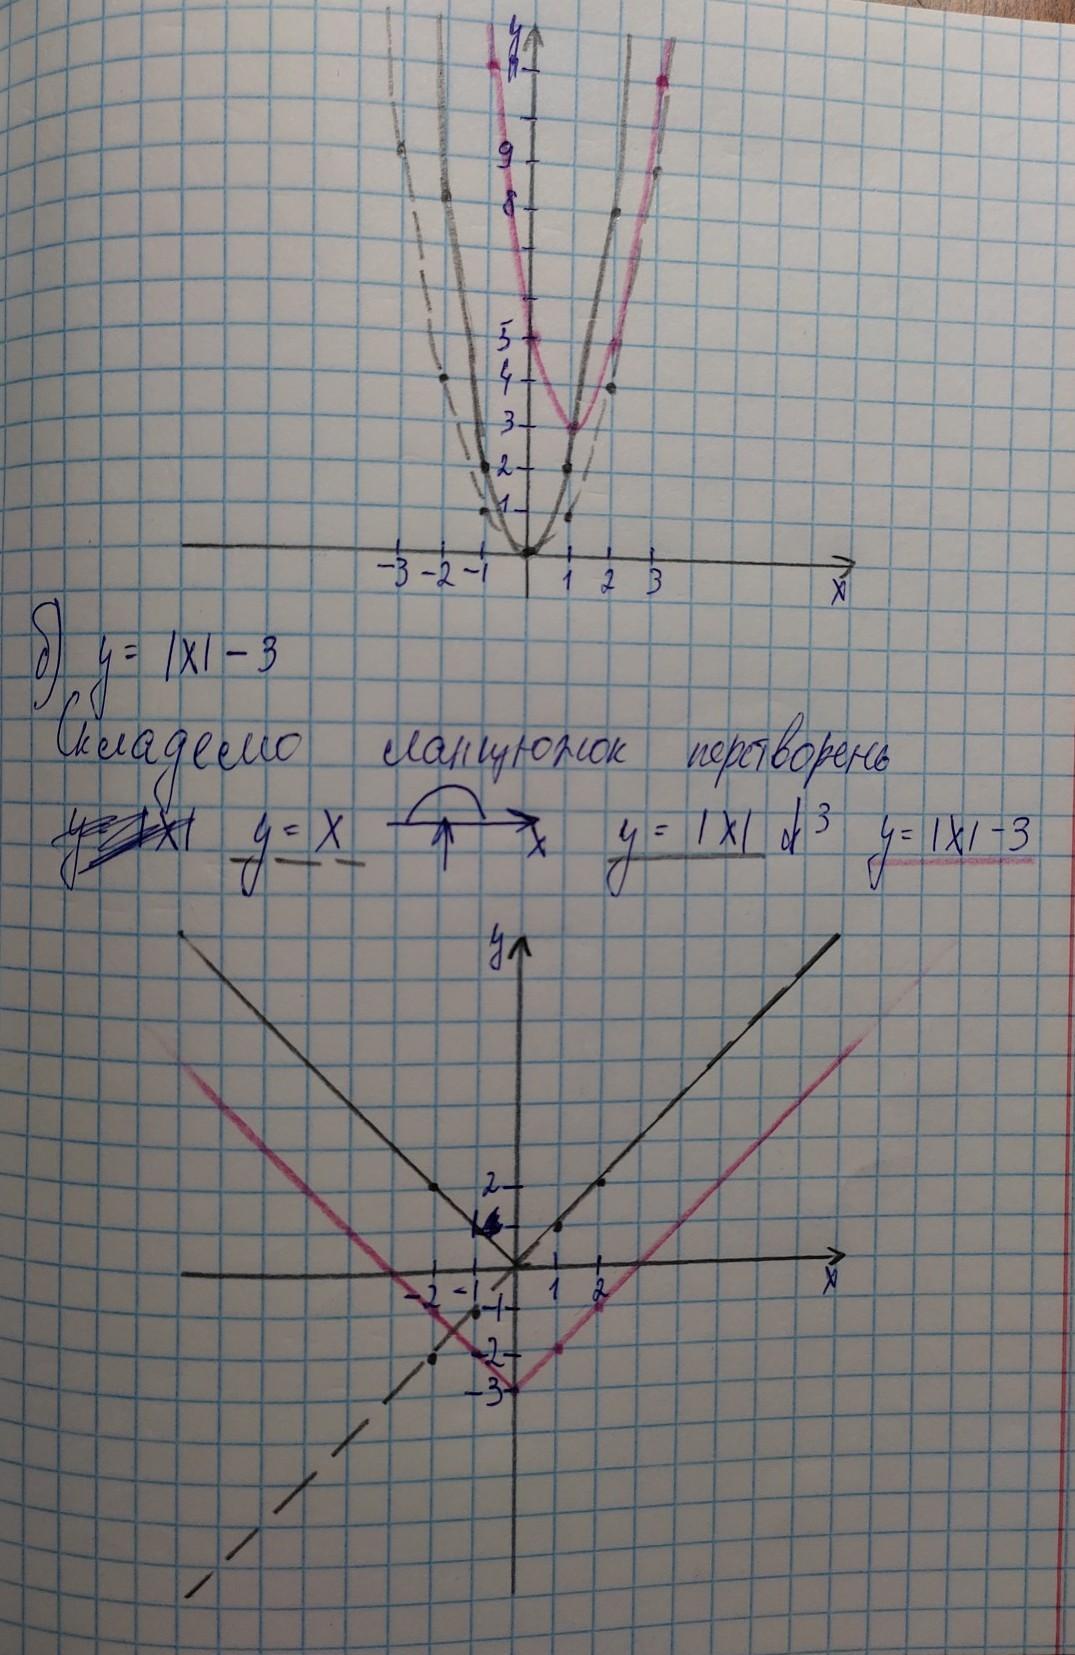 y
11
9
8
5
4
3
2
1
-3 -2 -1 1 2 3
x
б) y = |x| - 3
Складемо ланцюжок перетворень
y = |x| y = x x y = |x| ↓3 y = |x| - 3
y
2
1
-2 -1 1 2
x
-1
-2
-3